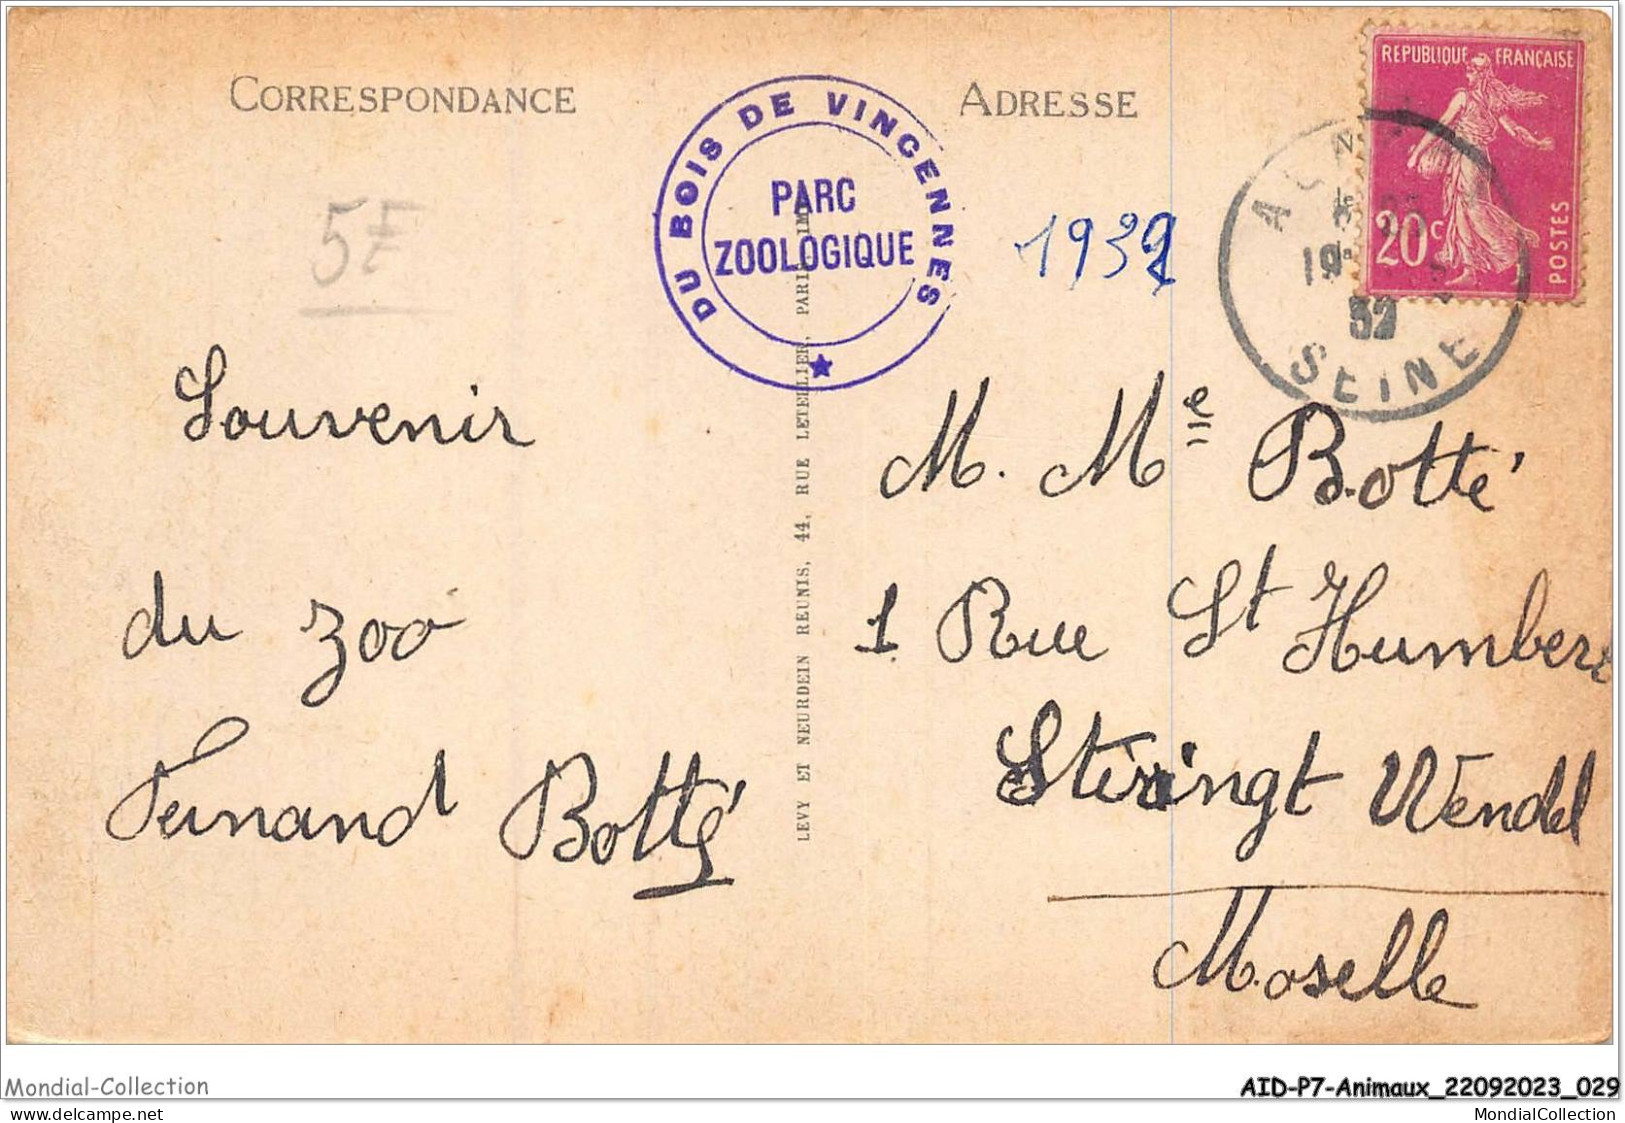 CORRESPONDANCE
ADRESSE
REPUBLIQUE FRANÇAISE
20c
POSTES
DU BOIS DE VINCENNES
PARC
ZOOLOGIQUE
5F
1932
SEINE
32
Souvenir
du zoo
Fernand Botté
LEVY ET NEURDEIN REUNIS, 44, RUE LETELLIER, PARIS IMP
M. Mlle Botté
1 Rue St Humbert
Stiringt Wendel
Moselle
Mondial-Collection
AID-P7-Animaux_22092023_029
© delcampe.net
MondialCollection